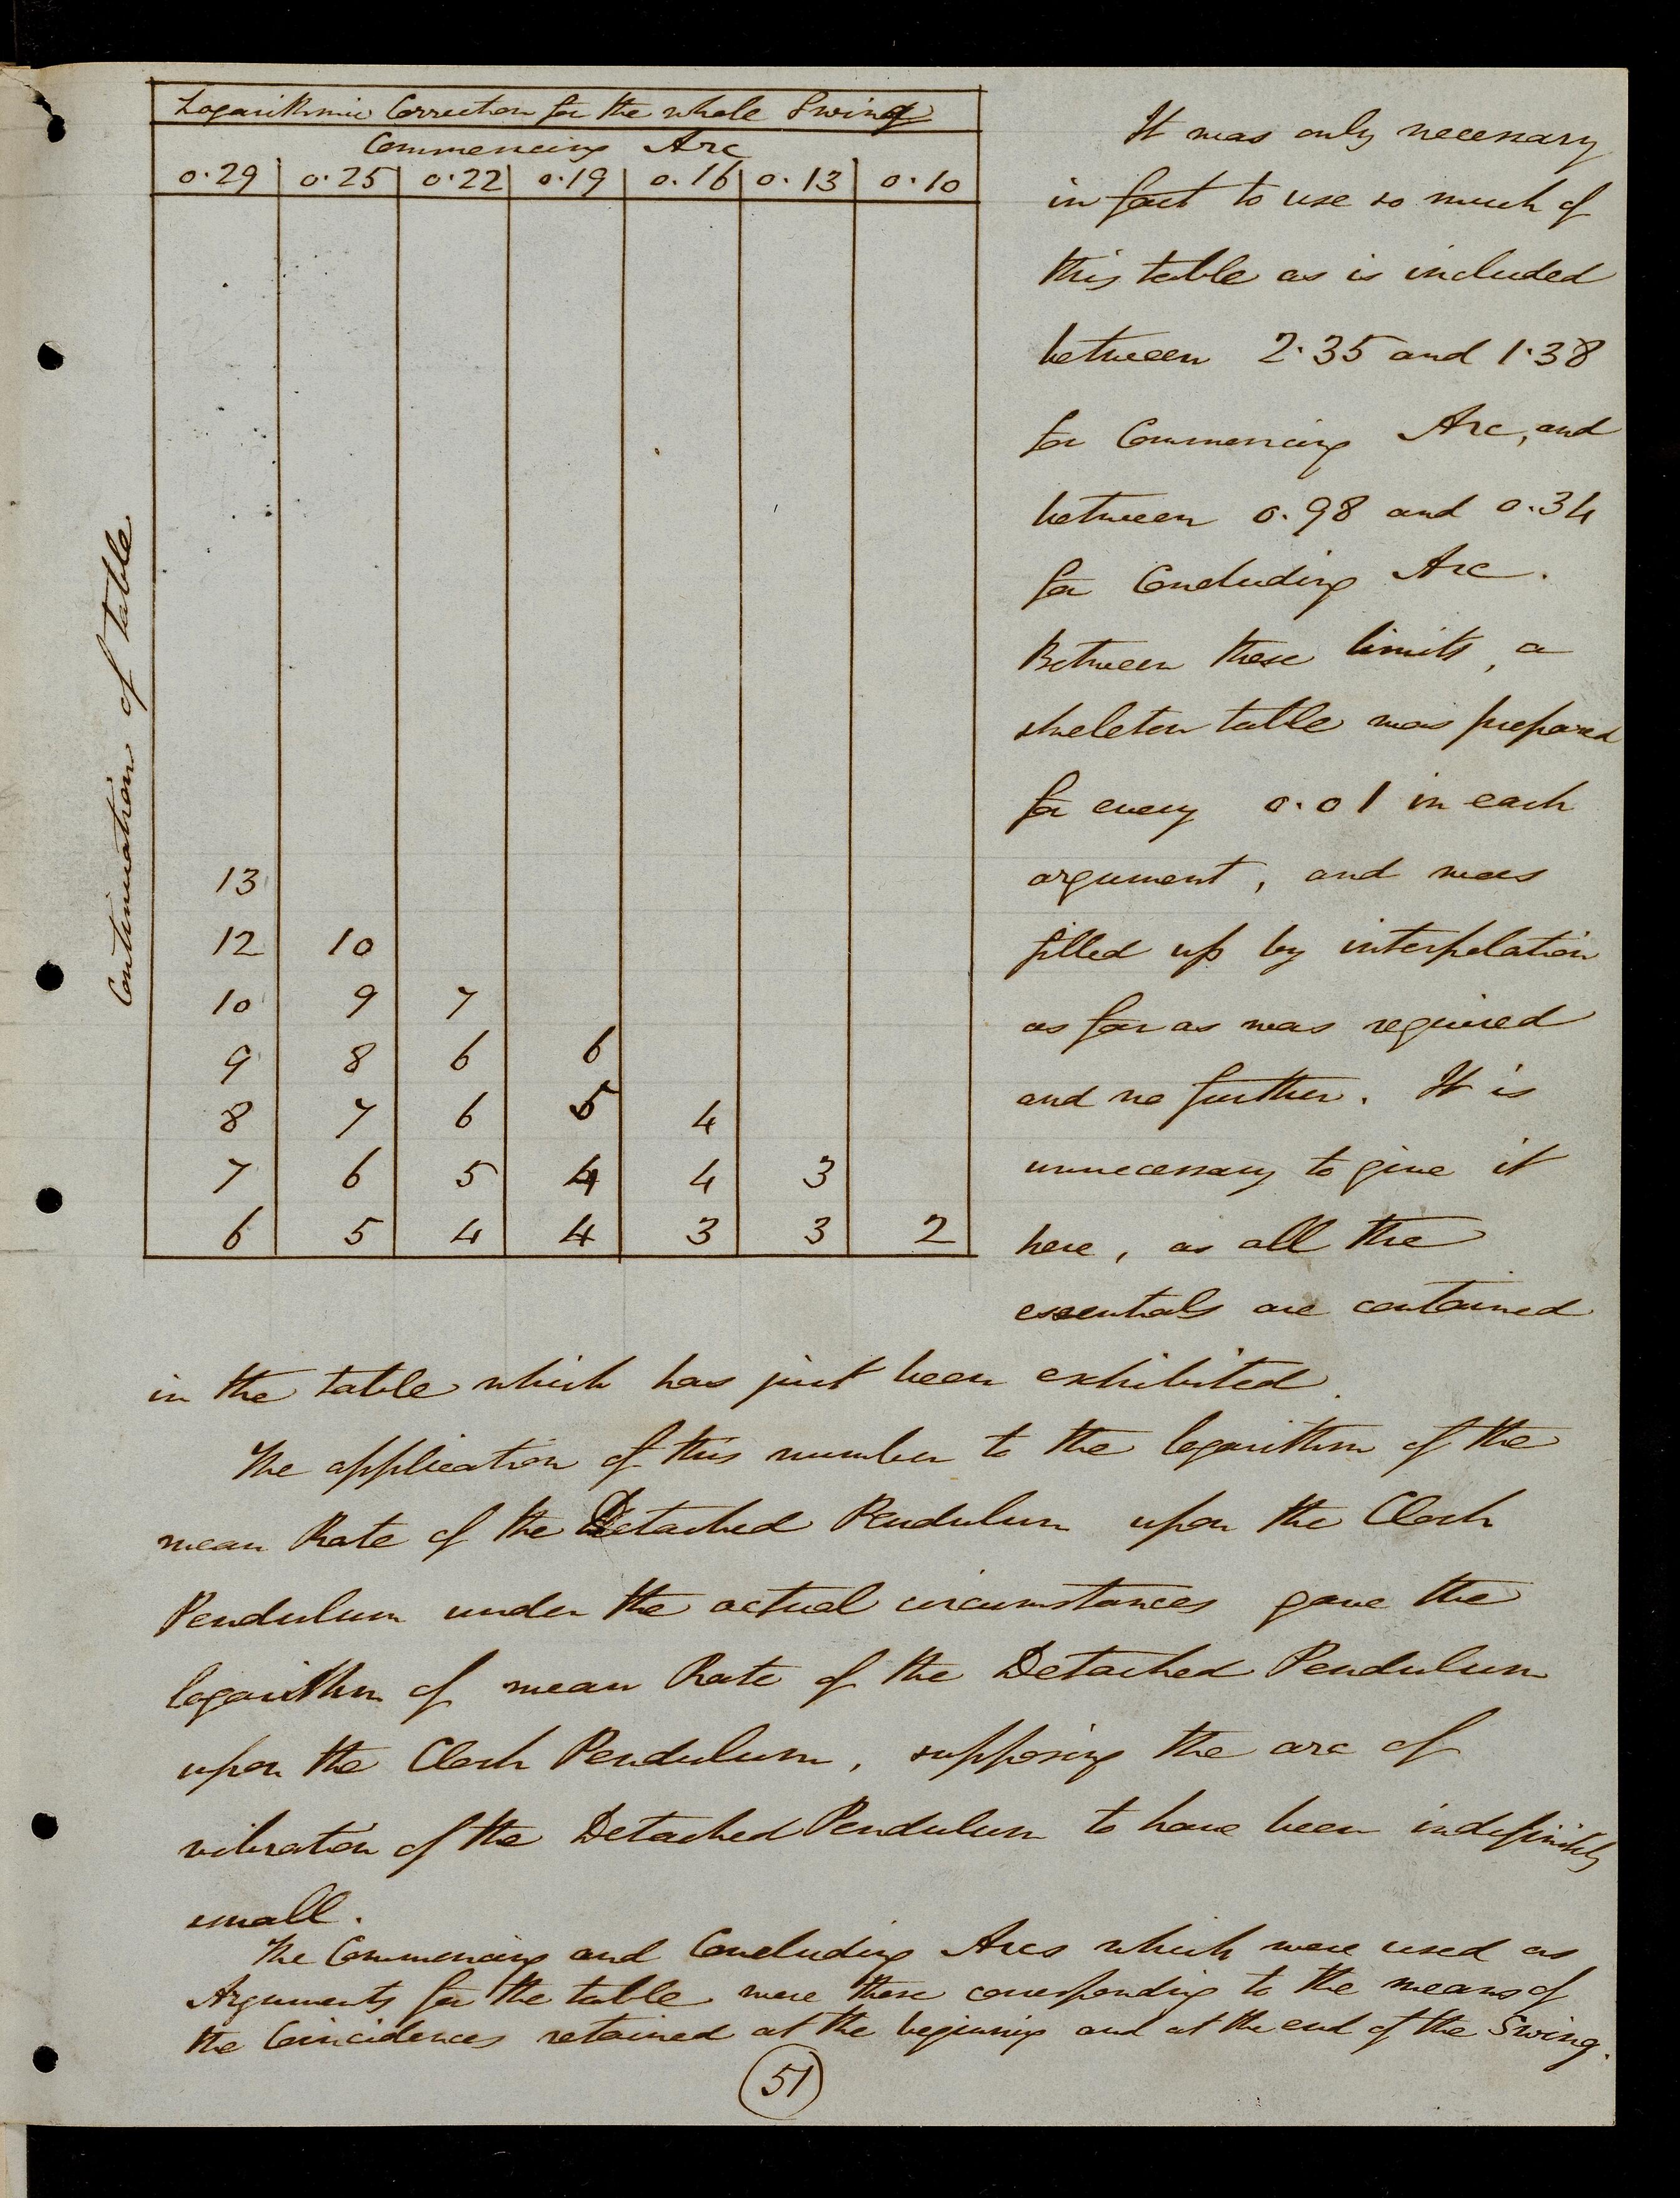 Continuation of table
Logarithmic Correction for the whole Swing
Commencing Arc
0.29 0.25 0.22 0.19 0.16 0.13 0.10
13
12 10
10 9 7
9 8 6 6
8 7 6 5 4
7 6 5 4 4 3
6 5 4 4 3 3 2
It was only necessary
in fact to use so much of
this table as is included
between 2.35 and 1.38
for Commencing Arc, and
between 0.98 and 0.34
for Concluding Arc.
Between these limits, a
skeleton table was prepared
for every 0.01 in each
argument, and was
filled up by interpolation
as far as was required
and no further. It is
unnecessary to give it
here, as all the
essentials are contained
in the table which has just been exhibited.
The application of this number to the logarithm of the
mean Rate of the Detached Pendulum upon the Clock
Pendulum under the actual circumstances gave the
logarithm of mean Rate of the Detached Pendulum
upon the Clock Pendulum, supposing the arc of
vibration of the Detached Pendulum to have been indefinitely
small.
The Commencing and Concluding Arcs which were used as
Arguments for the table were those corresponding to the means of
the Coincidences retained at the beginning and at the end of the Swing.
51